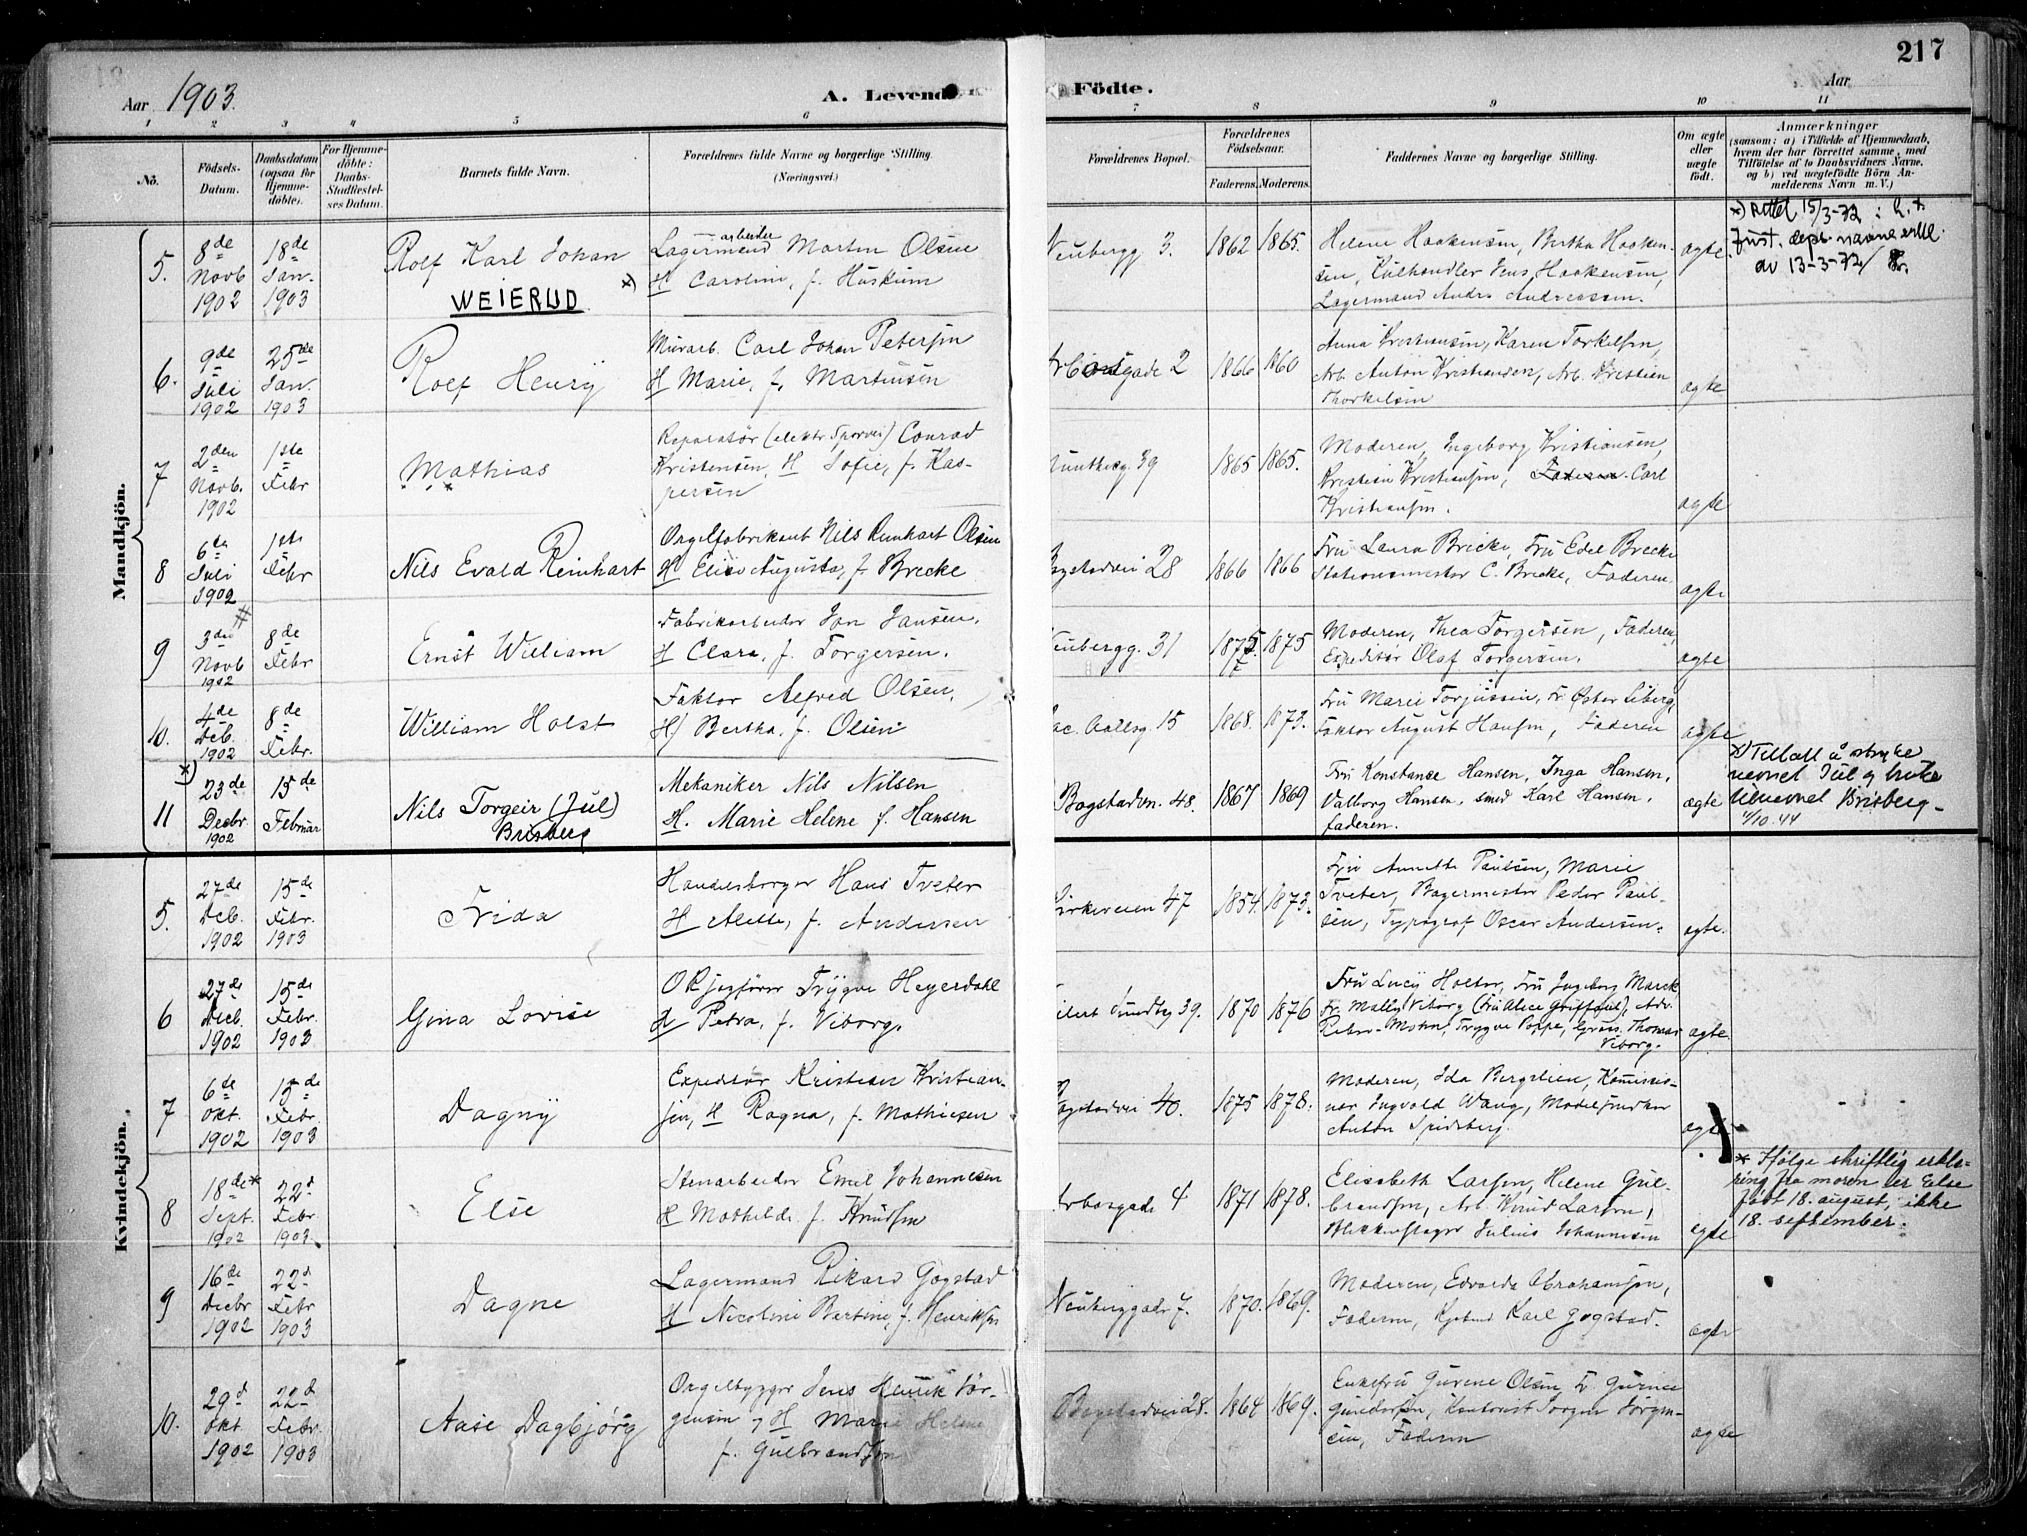 217
Aar 1903.
A. Levende Födte.
Aar
1 2 3 4 5 6 7 8 9 10 11
No.
Födsels-Datum.
Daabsdatum (ogsaa for Hjemme-döbte).
For Hjemme-döbte: Daabs-Stadfæstel-ses Datum.
Barnets fulde Navn.
Forældrenes fulde Navne og borgerlige Stilling.
(Næringsvei.)
Forældrenes Bopæl.
Forældrenes Födselsaar.
Faderens. Moderens.
Faddernes Navne og borgerlige Stilling.
Om ægte eller uægte födt.
Anmærkninger
(saasom: a) i Tilfælde af Hjemmedaab,
hvem der har forrettet samme, med
Tilföielse af to Daabsvidners Navne,
og b) ved uægtefödte Börn An-
melderens Navn m. V.)
Mandkjön.
5. 8de Novb 1902
18de Jan. 1903
Rolf Karl Johan
WEIERUD x)
Lagermand arbeider Morten Olsen
H Caroline, f. Huskum
Neubergg 3.
1862 1865.
Helene Haakensen, Bertha Haaken-
sen, Kulhandler Jens Haakensen,
Lagermand Andrs Andreassen.
ægte
x) Rettet 15/3-72 : h. t.
Just. dept. navneerkl.
av 13-3-72
6. 9de Juli 1902
25de Jan. 1903
Rolf Henry
Murarb. Carl Johan Petersen
H Marie, f. Martinsen
2
1866 1860
Anna Kristiansen, Karen Torkelsen,
Arb. Anton Kristiansen, Arb. Kristian
Thorkelsen
ægte
7 2den Novb. 1902
1ste Febr
Mathias
Reparatör (elektr Sporvei) Conrad
Kristensen, H Sofie, f. Kas-
persen
39
1865 1865.
Moderen, Ingeborg Kristiansen,
Kristian Kristiansen, Faderen Carl
Kristiansen.
ægte
8 6te Juli 1902
1ste Febr
Nils Evald Reinhart
Orgelfabrikant Nils Reinhart Olsen
H Elise Augusta, f. Brecke
Bogstadvei 28
1866 1866
Fru Laura Brecke, Fru Edel Brecke
Stationsmester C. Brecke, Faderen
ægte
9 3die Novb 1902
8de Febr
Ernst William
Fabrikarbeider Jon Jansen,
H Clara, f. Torgersen.
Neubergg. 31
1875 1875
Moderen, Thea Torgersen, Faderen,
Expeditör Olaf Torgersen.
ægte
10. 4de Deb. 1902
8de Febr.
William Holst
Faktor Alfred Olsen,
H Bertha, f. Olsen
15
1868. 1873.
Fru Marie Torjussen, Fr Öster Liberg,
Faktor August Hansen, Faderen
ægte
11 x) 23de Decbr. 1902
15de Februar
Nils Torgeir (Jul)
Brisberg
Mekaniker Nils Nilsen
H. Marie Helene f. Hansen
Bogstadvn. 48.
1867 1869
Fru Konstance Hansen, Inga Hansen,
Valborg Hansen, smed Karl Hansen,
faderen.
ægte
x) Tillatt å stryke
navnet Jul og bruke
tilnavnet Brisberg -
4/10.44
Kvindekjön.
5. 27de Deb. 1902
15de Febr. 1903
Frida
Handelsborger Hans Tveter
H Alette, f. Andersen
Kirkeveien 47
1854. 1873.
Fru Annette Paulsen, Marie
Tveter, Bagermester Peder Paul-
sen, Typograf Oscar Andersen.
ægte.
6 27de Decb. 1902
15de Febr. 1903
Gina Lovise
ORjagförer Trygve Heyerdahl
H Petra, f. Viborg.
Eilert Sundtsg 39.
1870 1876
Fru Lucy Holter, Fru Ingeborg Marck
Fr. Mally Viborg (Fru Alice Griffoul), Adv.
Peter Mohn, Trygve Poppe, Gros. Thomas
Viborg.
ægte.
7 6te Okt. 1902
15de Febr. 1903
Dagny
Expeditör Kristian Kristian-
sen, H Ragna, f. Mathiesen
Bogstadvei 40.
1875 1878.
Moderen, Ida Bergslien, Kommissio-
nær Ingvald Wang, Modelsnidker
Anton Spidsberg.
ægte
8 18de* Sept. 1902
22d Febr. 1903.
Else
Stenarbeider Emil Johannesen
H Mathilde f. Knudsen
Arbosgade 4
1871 1878.
Elisabeth Larsen, Helene Gul-
brandsen, Arb. Knud Larsen,
Blikkenslager Julius Johannesen
ægte
* Ifölge skriftlig erklæ-
ring fra moren er Else
födt 18. august, ikke
18. september.
9 16de Decbr 1902
22d Febr 1903
Dagne
Lagermand Rikard Gogstad
H Nicoline Bertine, f. Henriksen
Neuberggade 7.
1870. 1869.
Moderen, Edvarda Abrahamsen,
Faderen, Kjebmd Karl Gogstad.
ægte
10. 29d Okt. 1902
22d Febr. 1903
Aase Dagbjörg
Orgelbygger Jens Henrik Jör-
gensen og H Marie Helene
f. Gulbrandsen
Bogstadvei 28.
1864 1869.
Enkefru Gurene Olsen, Fr. Gurine
Gundersen, Kontorist Jorgen Jörgen-
sen, Faderen
ægte